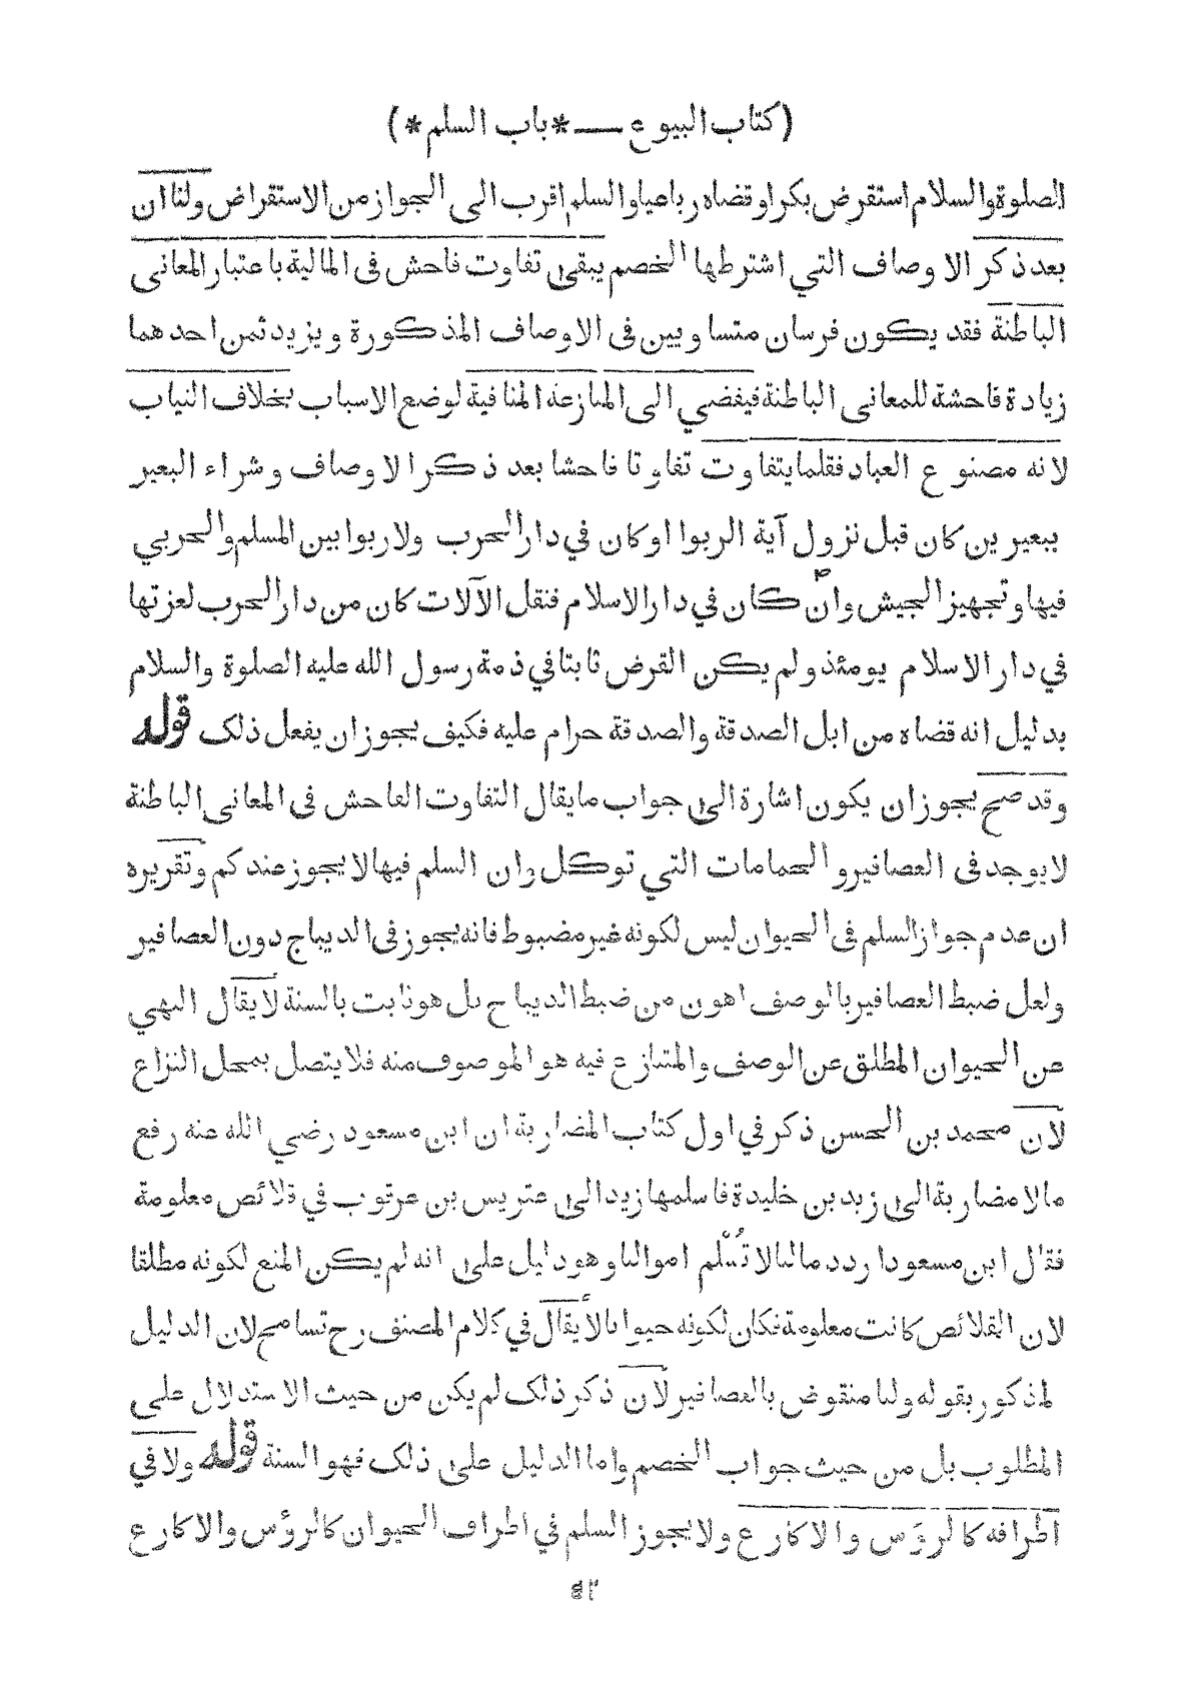 (كتاب البيوع — *باب السلم*)
الصلوة والسلام استقرض بكرا وقضاه رباعيا والسلم اقرب الى الجواز من الاستقراض ولنا ان
بعد ذكر الاوصاف التي اشترطها الخصم يبقى تفاوت فاحش فى المالية باعتبار المعانى
الباطنة فقد يكون فرسان متساويين فى الاوصاف المذكورة ويزيد ثمن احدهما
زيادة فاحشة للمعانى الباطنة فيفضي الى المنازعة المنافية لوضع الاسباب بخلاف الثياب
لانه مصنوع العباد فقلما يتفاوت تفاوتا فاحشا بعد ذكر الاوصاف وشراء البعير
ببعيرين كان قبل نزول آية الربوا او كان في دار الحرب ولا ربوا بين المسلم والحربي
فيها وتجهيز الجيش وان كان في دار الاسلام فنقل الآلات كان من دار الحرب لعزتها
في دار الاسلام يومئذ ولم يكن القرض ثابتا في ذمة رسول الله عليه الصلوة والسلام
بدليل انه قضاه من ابل الصدقة والصدقة حرام عليه فكيف يجوز ان يفعل ذلك قوله
وقد صح يجوز ان يكون اشارة الى جواب ما يقال التفاوت الفاحش فى المعانى الباطنة
لا يوجد فى العصافير والحمامات التي توكل وان السلم فيها لا يجوز عندكم وتقريره
ان عدم جواز السلم فى الحيوان ليس لكونه غير مضبوط فانه يجوز فى الديباج دون العصافير
ولعل ضبط العصافير بالوصف اهون من ضبط الديباج بل هو ثابت بالسنة لا يقال النهي
عن الحيوان المطلق عن الوصف والمتنازع فيه هو الموصوف منه فلا يتصل بمحل النزاع
لان محمد بن الحسن ذكر في اول كتاب المضاربة ان ابن مسعود رضي الله عنه رفع
مالا مضاربة الى زيد بن خليدة فاسلمها زيد الى عتريس بن عرقوب في قلائص معلومة
فقال ابن مسعود اردد مالنا لا تُسْلم اموالنا وهو دليل على انه لم يكن المنع لكونه مطلقا
لان القلائص كانت معلومة فكان لكونه حيوانا لا يقال في كلام المصنف رح تسامح لان الدليل
لمذكور بقوله ولنا منقوض بالعصافير لان ذكر ذلك لم يكن من حيث الاستدلال على
المطلوب بل من حيث جواب الخصم واما الدليل على ذلك فهو السنة قوله ولا في
اطرافه كالرؤس والاكارع ولا يجوز السلم في اطراف الحيوان كالرؤس والاكارع